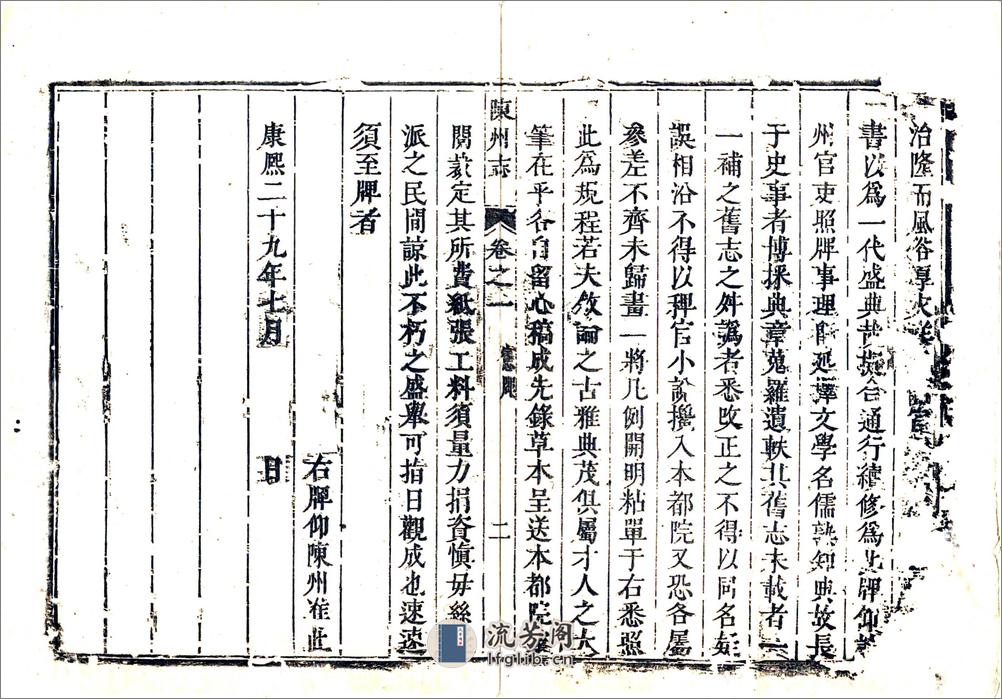 治隆而風俗淳
一書以爲一代盛典哉擬合通行纘修爲此牌仰該
州官吏照牌事理即延擇文學名儒熟知典故長
于史事者博採典章蒐羅遺軼其舊志未載者一
一補之舊志之舛譌者悉改正之不得以同名疑
誤相沿不得以稗官小說攙入本都院又恐各屬
參差不齊未歸畫一將凡例開明粘單于右悉照
此爲規程若夫敘論之古雅典茂俱屬才人之大
筆在乎各自留心稿成先錄草本呈送本都院
陳州志
卷之一
憲牌
二
閱裁定其所費紙張工料須量力捐資慎毋絲
派之民間諒此不朽之盛舉可指日觀成也速速
須至牌者
右牌仰陳州准此
康熙二十九年七月 日
流芳阁
lfglib.cn